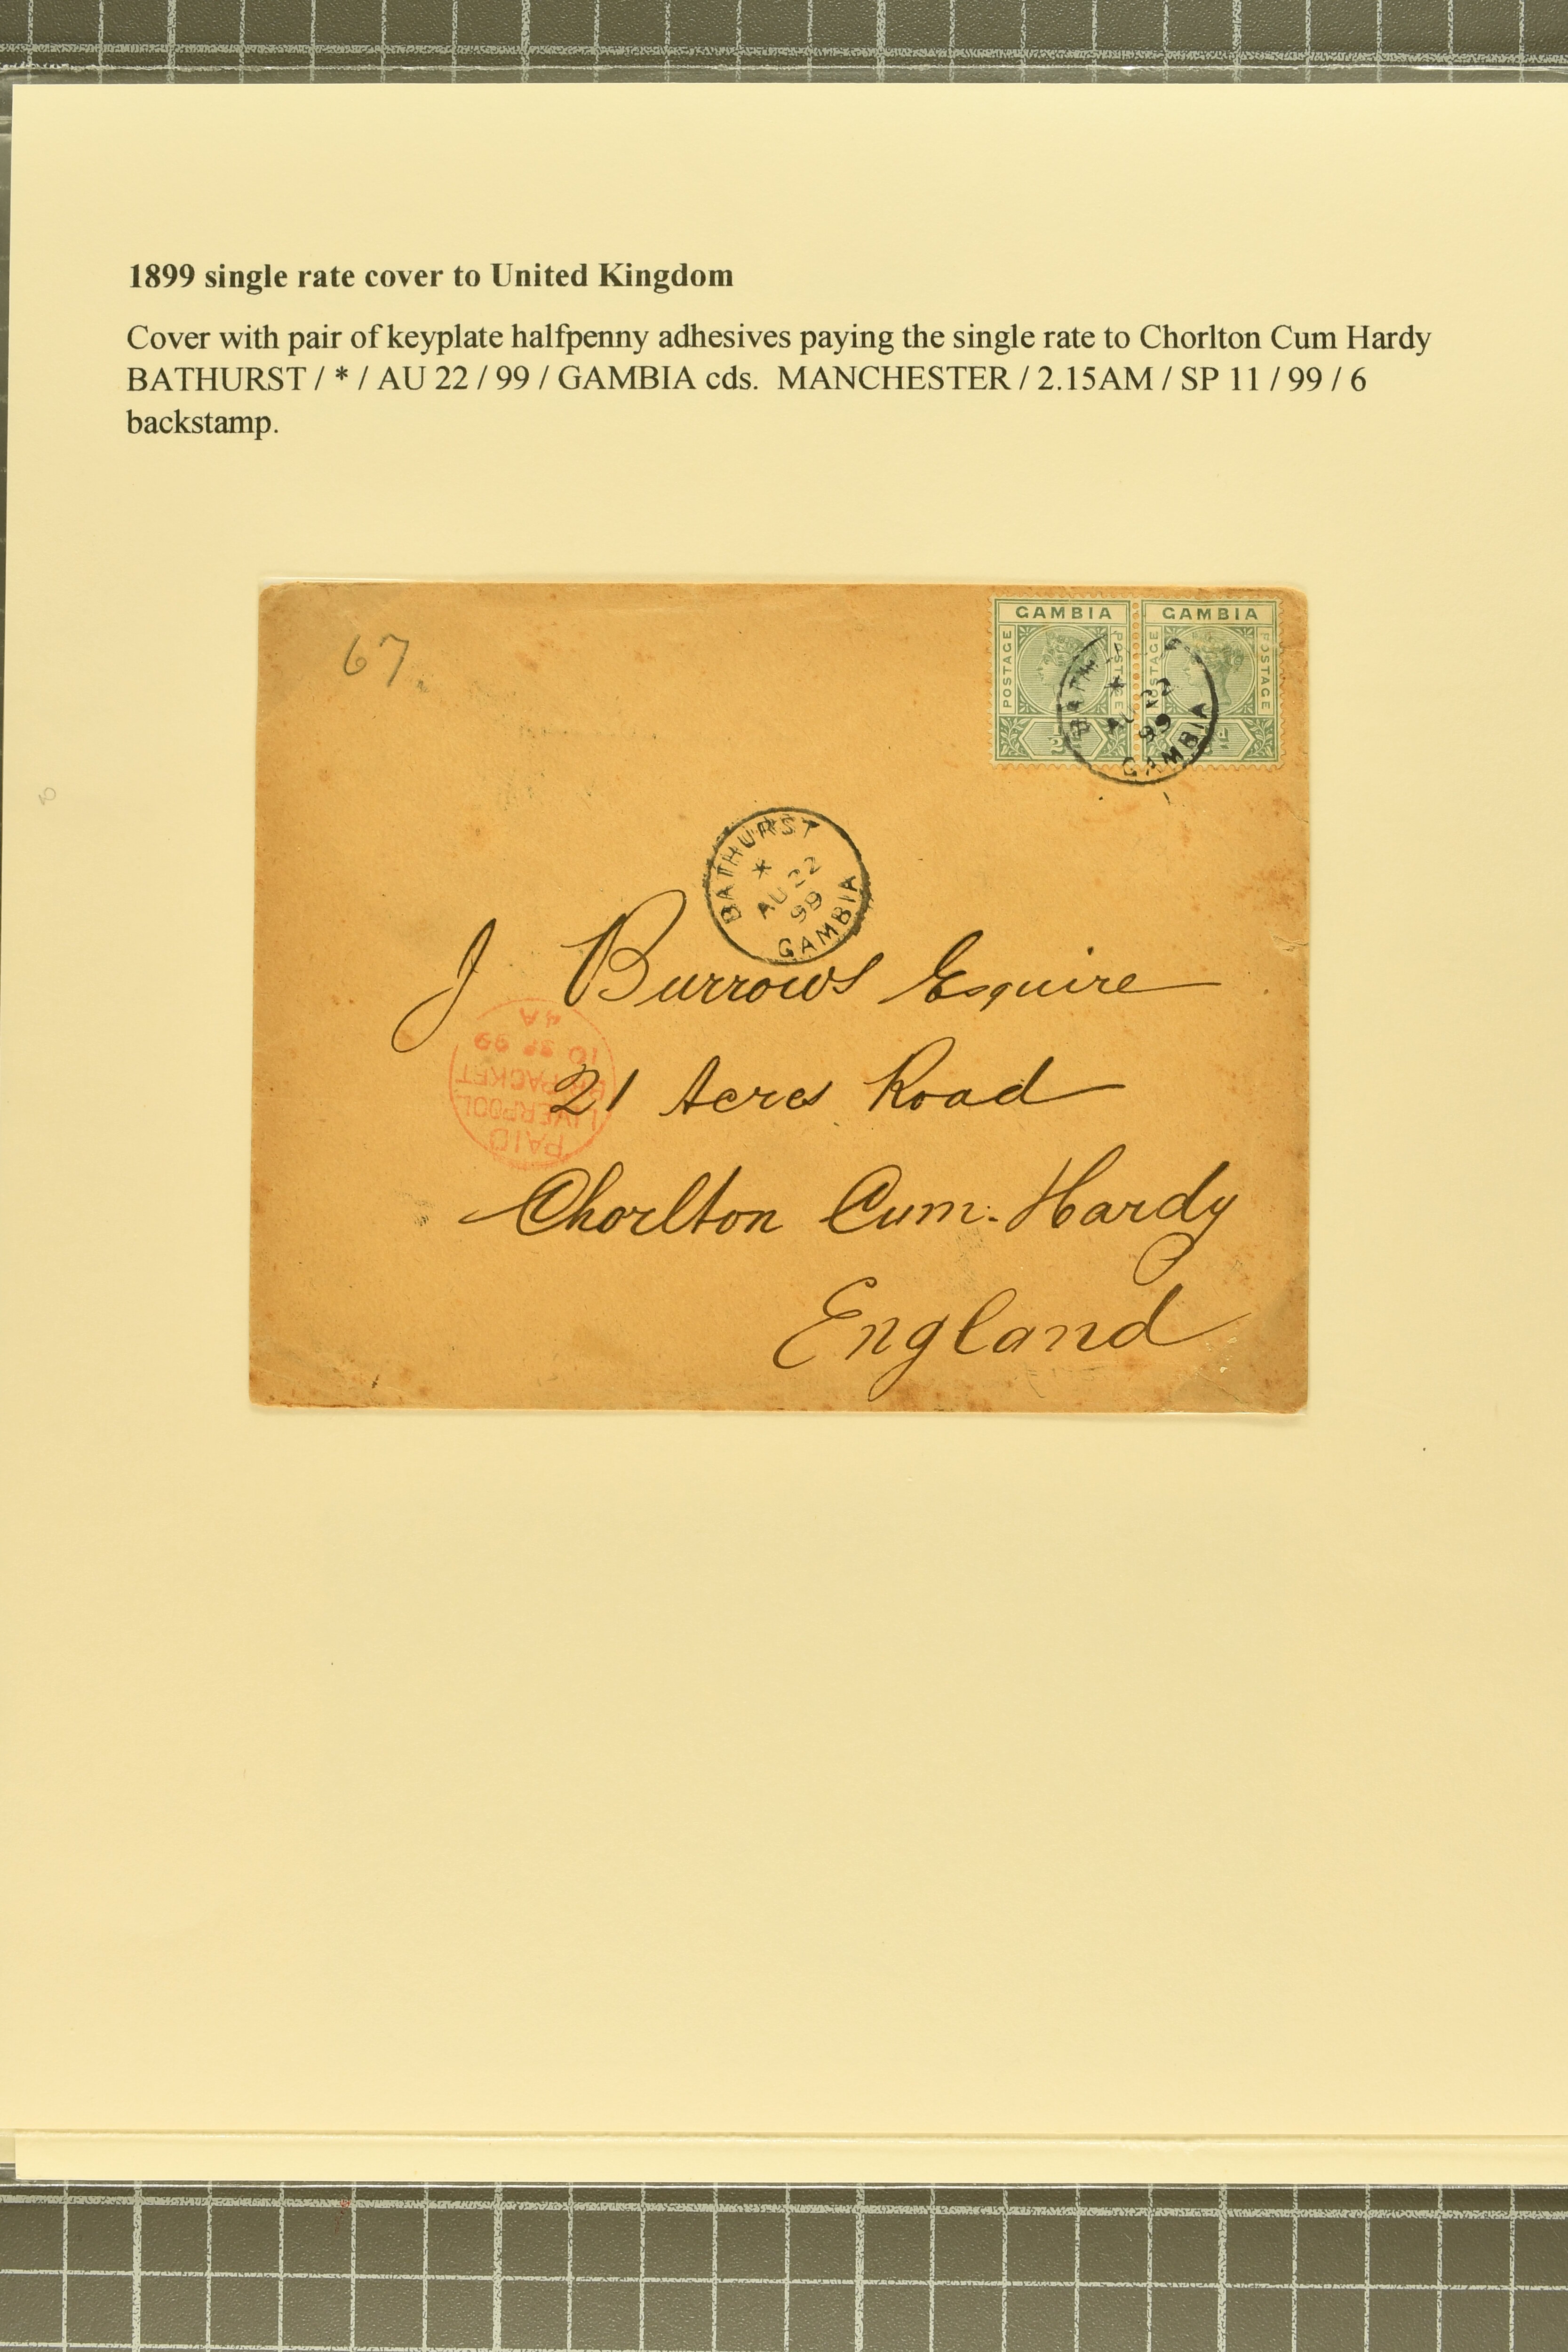 1899 single rate cover to United Kingdom
Cover with pair of keyplate halfpenny adhesives paying the single rate to Chorlton Cum Hardy
BATHURST / * / AU 22 / 99 / GAMBIA cds. MANCHESTER / 2.15AM / SP 11 / 99 / 6
backstamp.
67.
GAMBIA GAMBIA
POSTAGE POSTAGE POSTAGE POSTAGE
BATH
*
AU 22
99
GAMBIA
BATHURST
*
AU 22
99
GAMBIA
J Burrows Esquire
21 Acres Road
Chorlton Cum. Hardy
England
PAID
LIVERPOOL
BR. PACKET
10 SP 99
4A